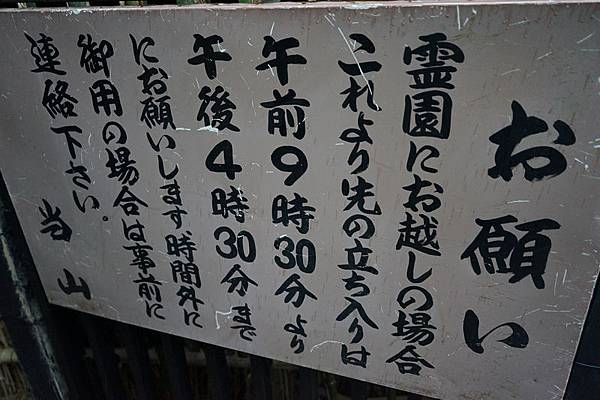 お願い
霊園にお越しの場合
これより先の立ち入りは
午前9時30分より
午後4時30分まで
にお願いします。時間外に
御用の場合は事前に
連絡下さい。
当山